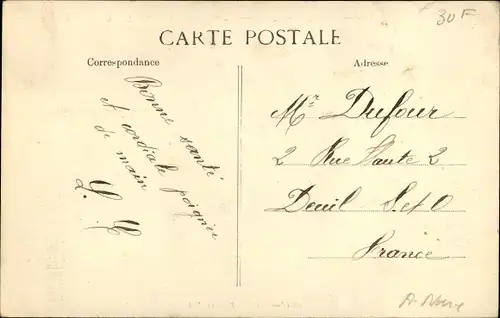 30F
CARTE POSTALE
Correspondance
Adresse
Bonne santé
et cordiale poignée
de main
Mr Dufour
2 Rue Haute 2
Deuil S et O
France